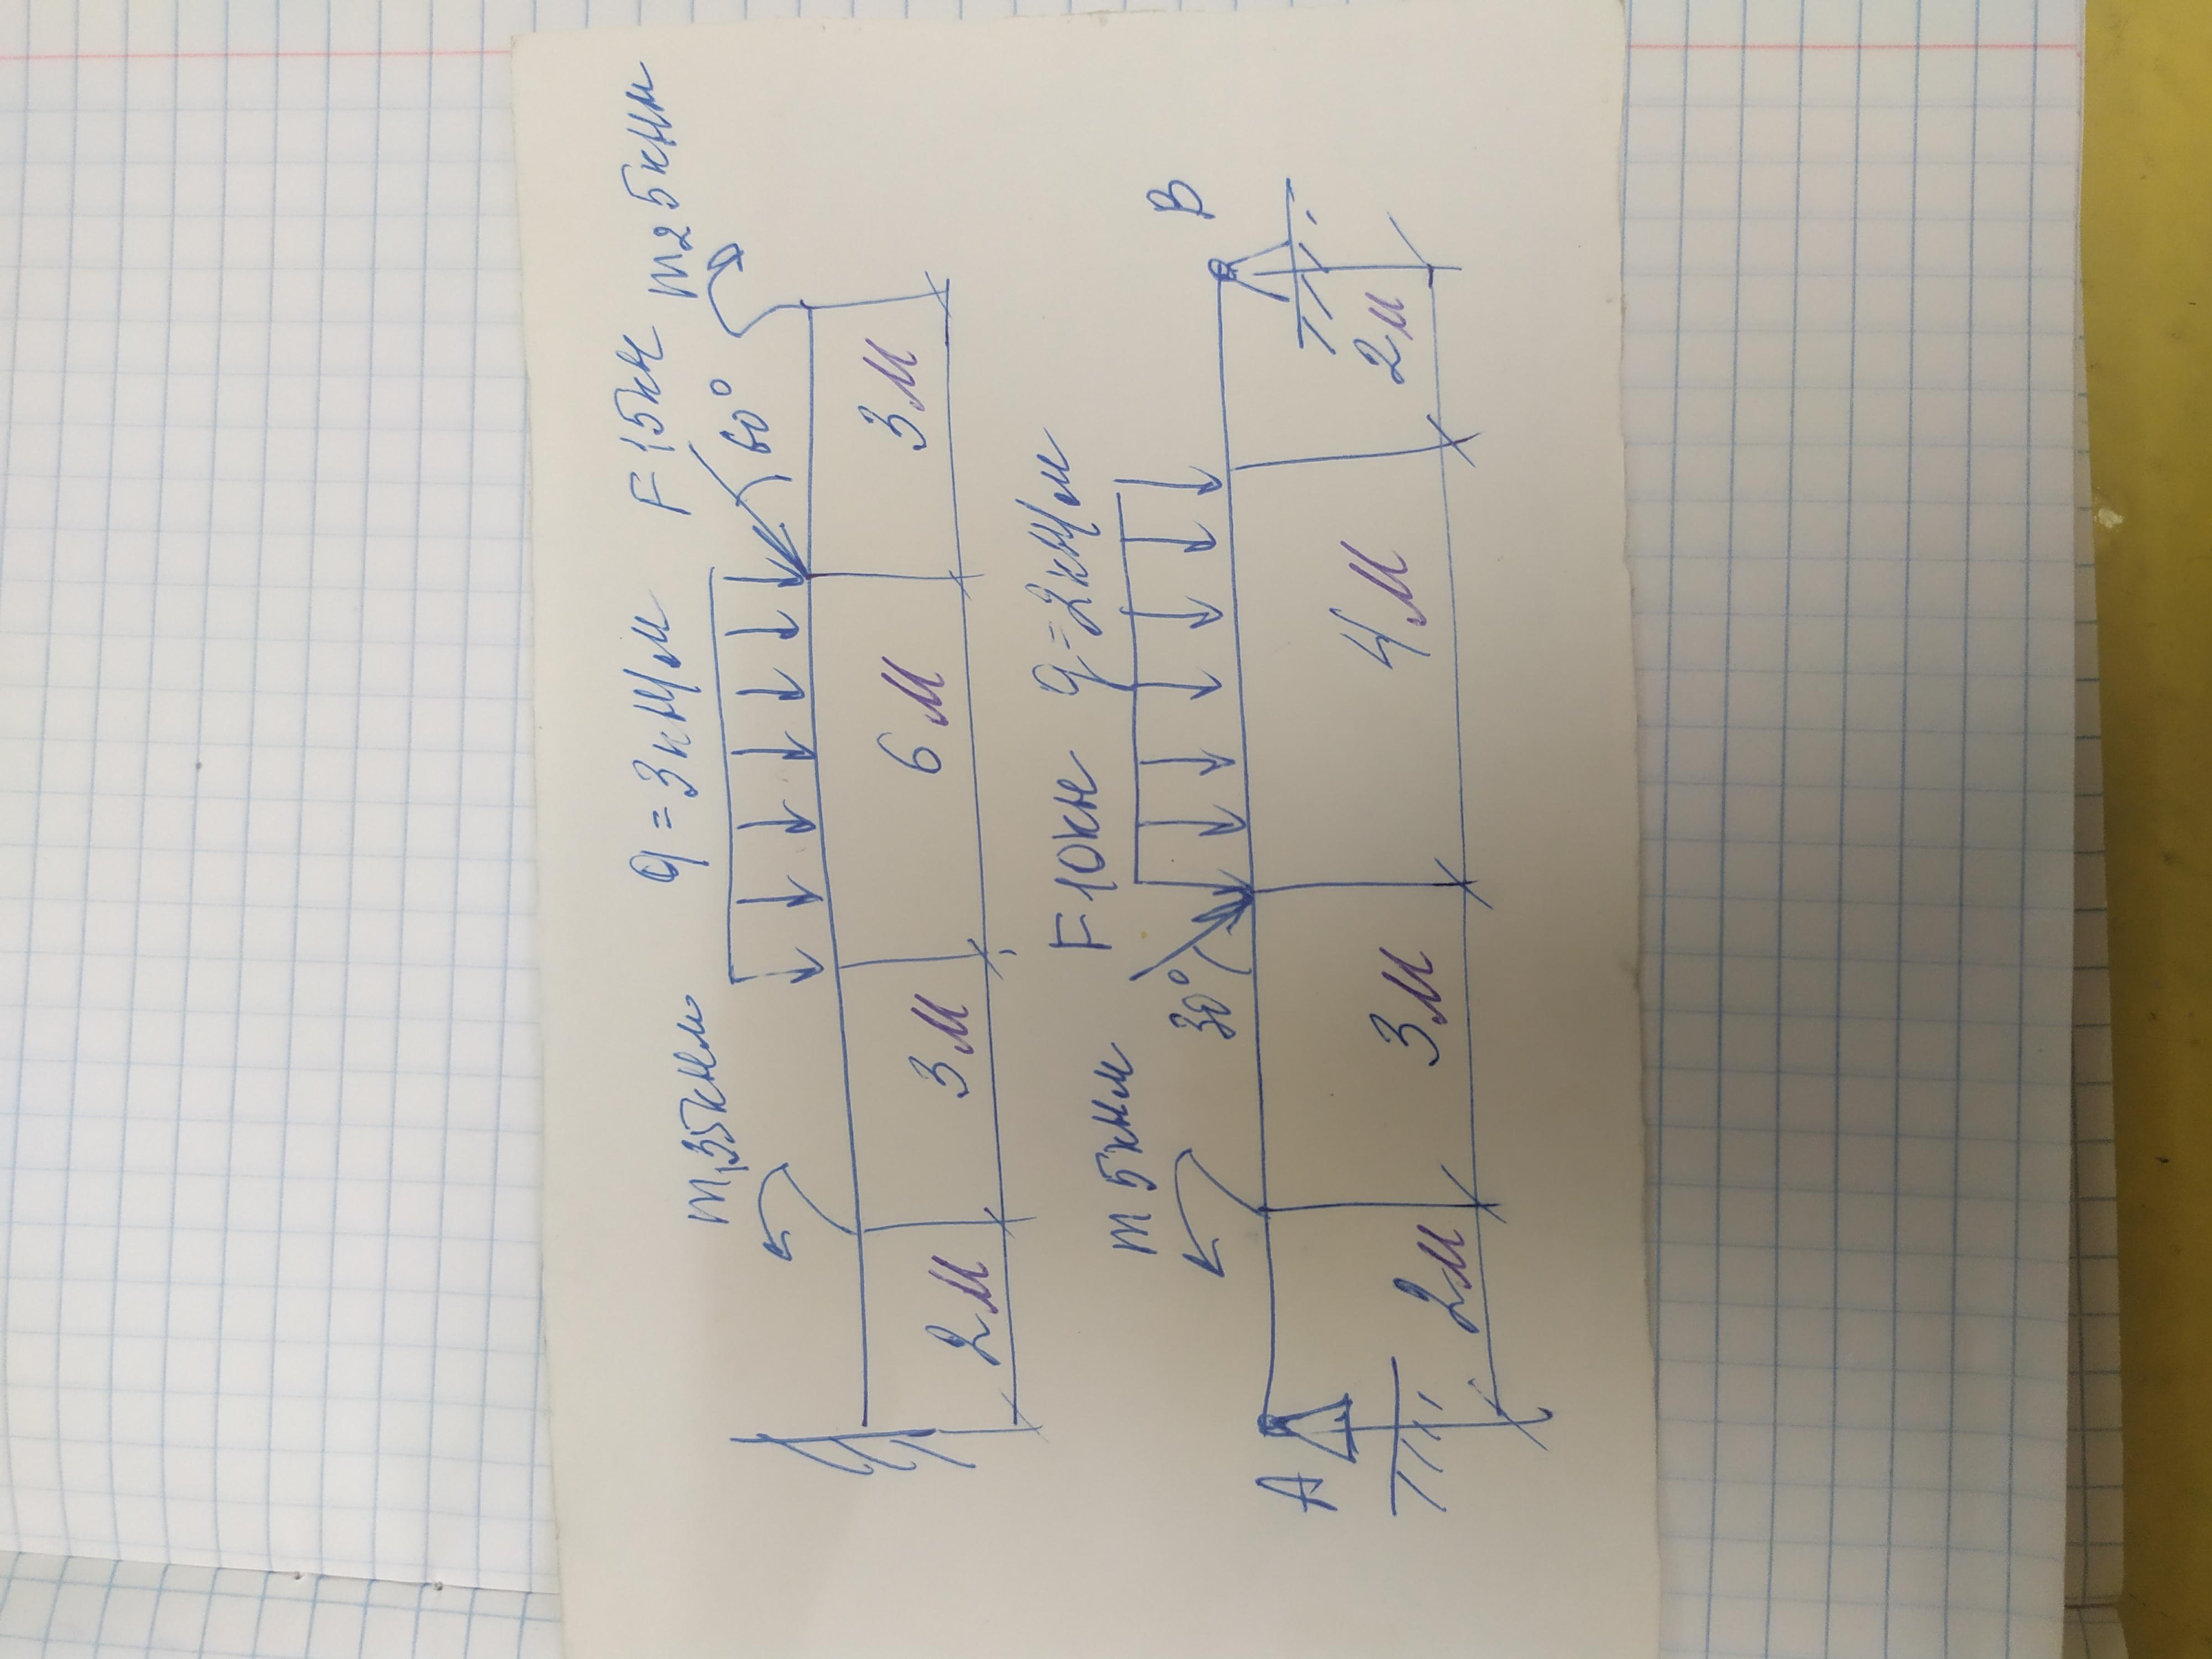 m₁35кнм q=3кН/м F=15кн m₂5кнм
60°
2м 3м 6м 3м
m 5кнм F=10кн q=2кН/м
30°
A B
2м 3м 4м 2м